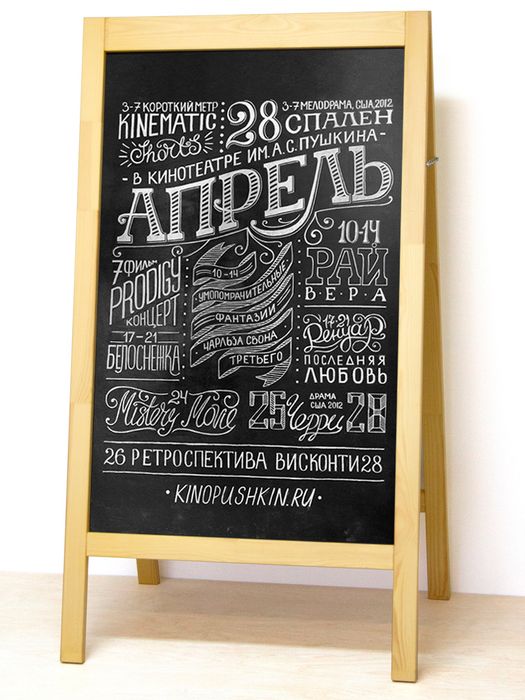 3-7 КОРОТКИЙ МЕТР
KINEMATIC
Shorts
3-7 МЕЛОДРАМА, США, 2012
28 СПАЛЕН
- В КИНОТЕАТРЕ ИМ. А.С. ПУШКИНА -
АПРЕЛЬ
7 ФИЛЬМ-
PRODIGY
КОНЦЕРТ
17-21
БЕЛОСНЕЖКА
10-14
УМОПОМРАЧИТЕЛЬНЫЕ
ФАНТАЗИИ
ЧАРЛЬЗА СВОНА
ТРЕТЬЕГО
10-14
РАЙ
ВЕРА
17-21
Ренуар
ПОСЛЕДНЯЯ
ЛЮБОВЬ
24
Mistery More
ДРАМА
США 2012
25 Черри 28
26 РЕТРОСПЕКТИВА ВИСКОНТИ 28
· KINOPUSHKIN.RU ·